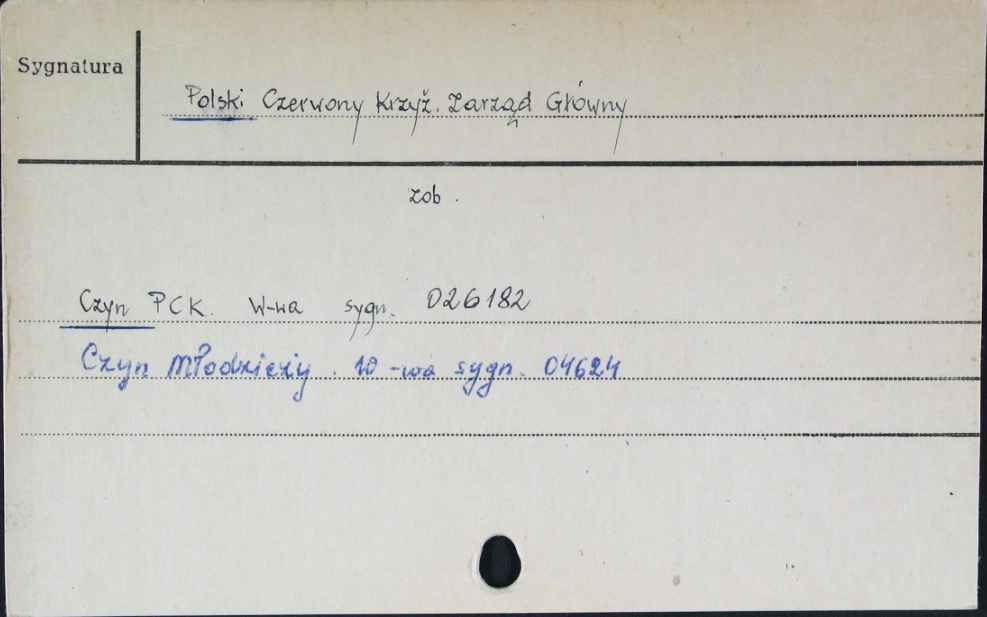 Sygnatura
Polski Czerwony Krzyż. Zarząd Główny
zob.
Czyn PCK. W-wa sygn. 026182
Czyn Młodzieży. W-wa sygn. 04624